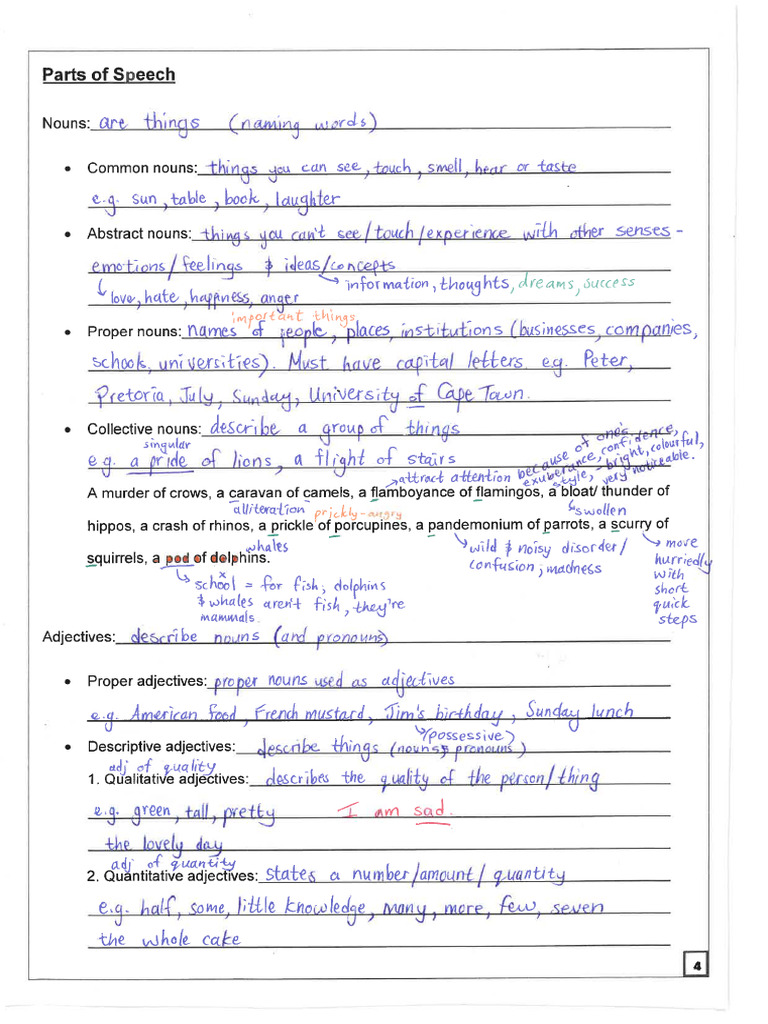 Parts of Speech
Nouns: are things (naming words)
• Common nouns: things you can see, touch, smell, hear or taste
e.g. sun, table, book, laughter
• Abstract nouns: things you can't see/touch/experience with other senses -
emotions/feelings & ideas/concepts
information, thoughts, dreams, success
love, hate, happiness, anger
important things
• Proper nouns: names of people, places, institutions (businesses, companies,
schools, universities). Must have capital letters e.g. Peter,
Pretoria, July, Sunday, University of Cape Town.
• Collective nouns: describe a group of things
singular
e.g. a pride of lions, a flight of stairs
attract attention because of one's
exuberance, confidence,
style, - bright, colourful,
very noticeable.
A murder of crows, a caravan of camels, a flamboyance of flamingos, a bloat/ thunder of
alliteration prickly-angry swollen
hippos, a crash of rhinos, a prickle of porcupines, a pandemonium of parrots, a scurry of
whales
squirrels, a pod of dolphins.
wild & noisy disorder/
confusion; madness
move
hurriedly
with
short
quick
steps
school = for fish; dolphins
& whales aren't fish, they're
mammals.
Adjectives: describe nouns (and pronouns)
• Proper adjectives: proper nouns used as adjectives
e.g. American food, French mustard, Jim's birthday, Sunday lunch
(possessive)
• Descriptive adjectives: describe things (nouns & pronouns)
adj of quality
1. Qualitative adjectives: describes the quality of the person/thing
e.g. green, tall, pretty I am sad.
the lovely day
adj of quantity
2. Quantitative adjectives: states a number/amount/quantity
e.g. half, some, little knowledge, many, more, few, seven
the whole cake
4